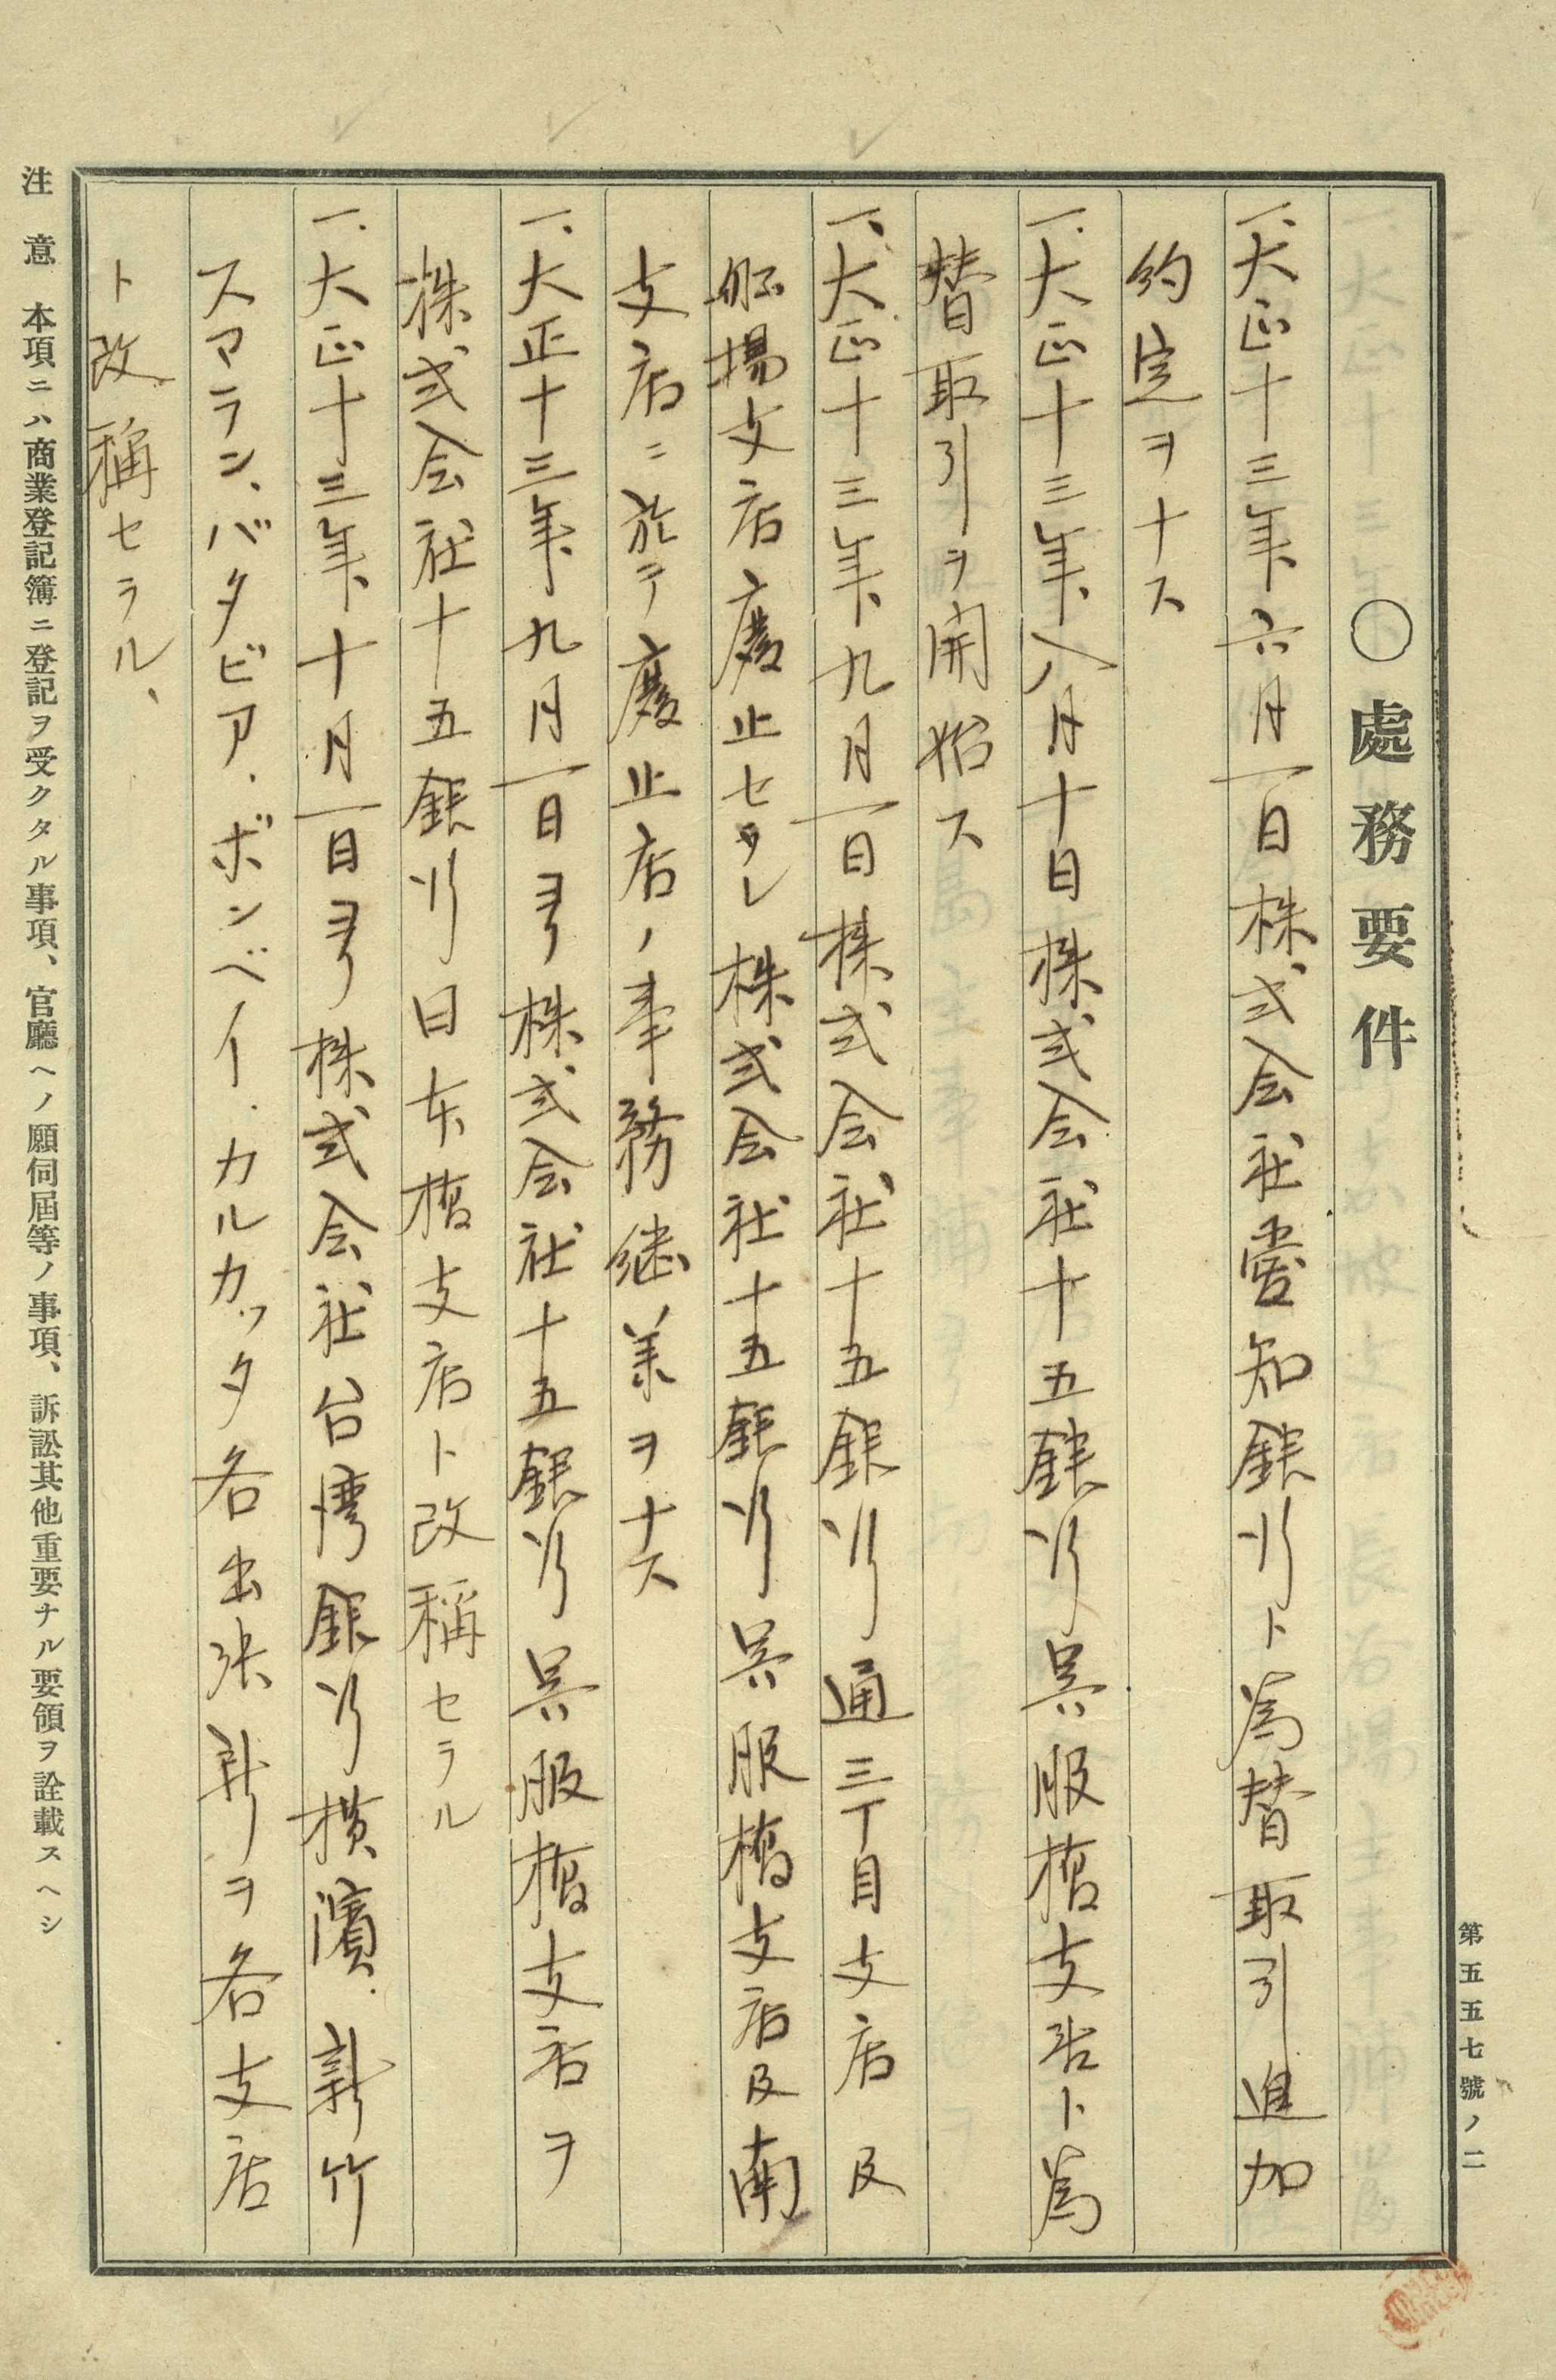 第五五七號ノ二
〇處務要件
一、大正十三年六月一日株式会社愛知銀行ト為替取引追加
約定ヲナス
一、大正十三年八月十日株式会社十五銀行呉服橋支店ト為
替取引ヲ開始ス
一、大正十三年九月一日株式会社十五銀行通三丁目支店及
船場支店廃止セラレ株式会社十五銀行呉服橋支店及南
支店ニ於テ廃止店ノ事務継業ヲナス
一、大正十三年九月一日ヨリ株式会社十五銀行呉服橋支店ヲ
株式会社十五銀行日本橋支店ト改稱セラル
一、大正十三年十月一日ヨリ株式会社台湾銀行横濱、新竹
スマラン、バタビア、ボンベイ、カルカッタ各出張所ヲ各支店
ト改稱セラル、
注意 本項ニハ商業登記簿ニ登記ヲ受クタル事項、官廳ヘノ願伺屆等ノ事項、訴訟其他重要ナル要領ヲ詮載スヘシ